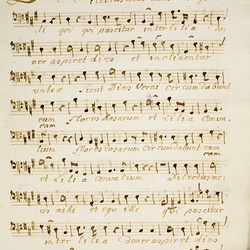 li qui qui pascitur inter lilia do,
nec aspiret dies et inclinentur
umbræ Sicut Dies Verni circumdabunt
eam flores Rosarum et Lilia Conva,
eam
lium flores rosarum Circumdabunt eam
eam
et Lilia Convalium Dilectus me,
us mihi et ego illi qui pascitur
inter Lilia Donec aspiret dies